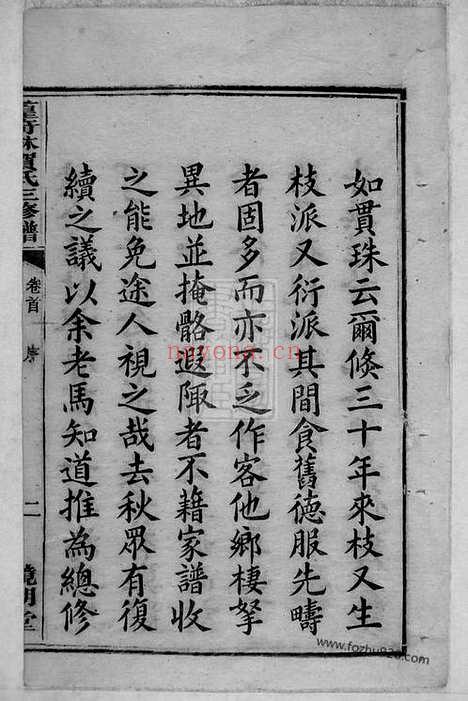 如貫珠云爾倐三十年來枝又生
枝派又衍派其間食舊德服先疇
者固多而亦不乏作客他鄉棲孥
異地並掩骼遐陬者不藉家譜收
之能免途人視之哉去秋眾有復
續之議以余老馬知道推為總修
氏三修譜
卷首
序
二
堂
nayona.cn
www.fozhu920.com